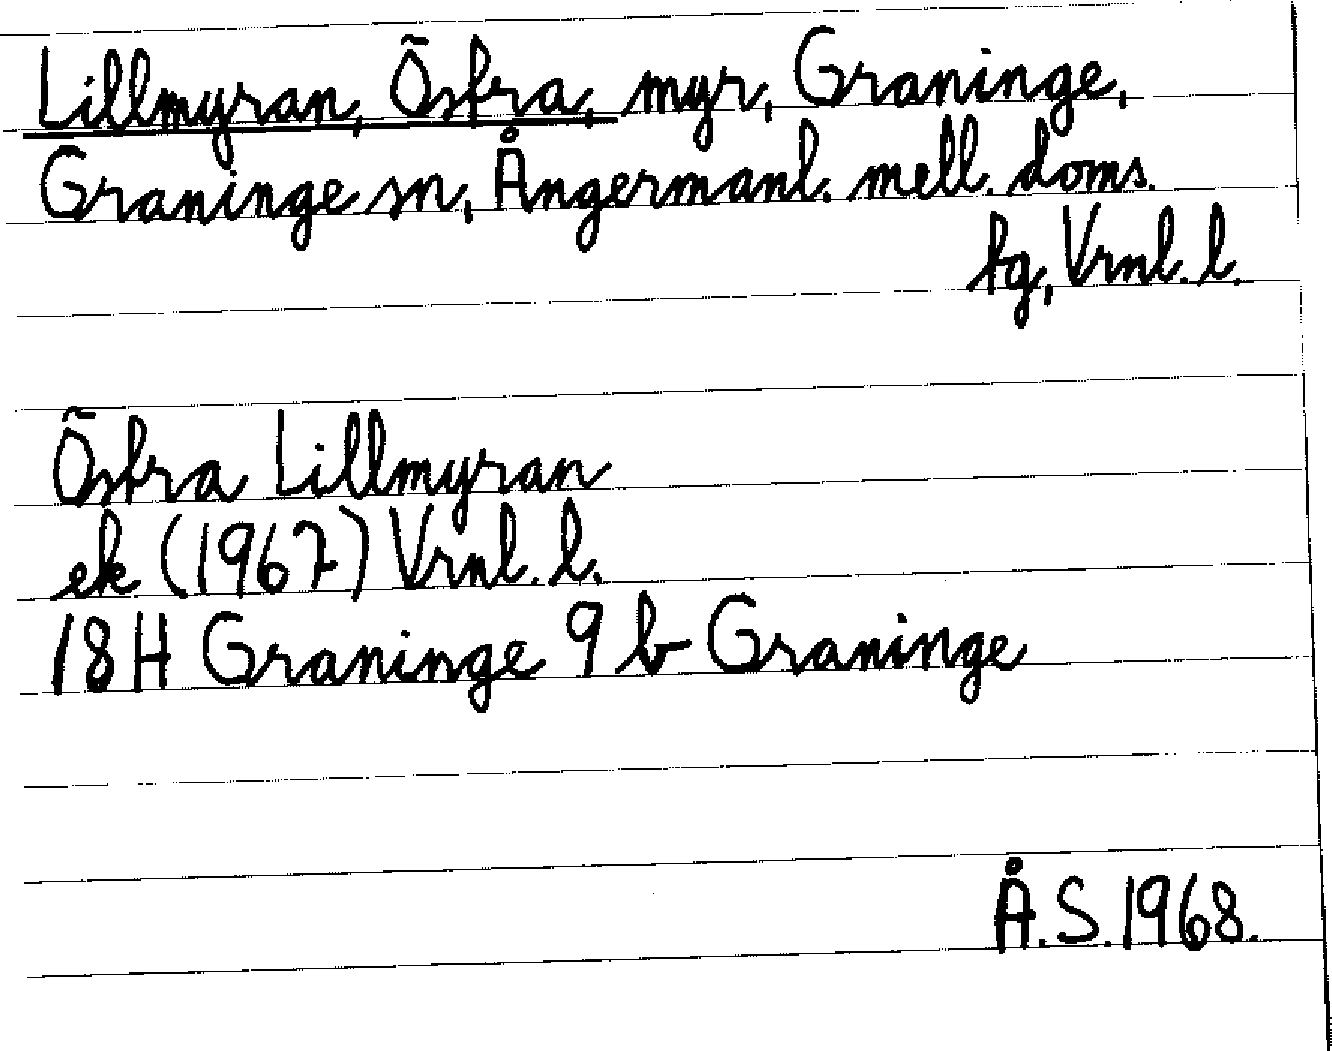 Lillmyran, Östra, myr, Graninge,
Graninge sn, Ångermanl. mell. doms.
tg, Vrnl. l.
Östra Lillmyran
ek (1967) Vrnl. l.
18H Graninge 9 b Graninge
Å.S. 1968.